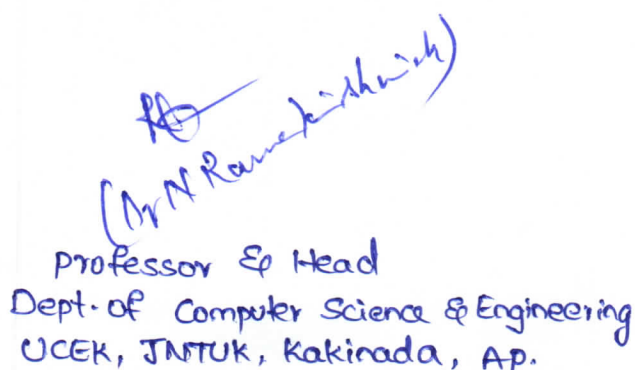 (Dr N Ramakrishnaiah)
Professor & Head
Dept. of Computer Science & Engineering
UCEK, JNTUK, Kakinada, AP.